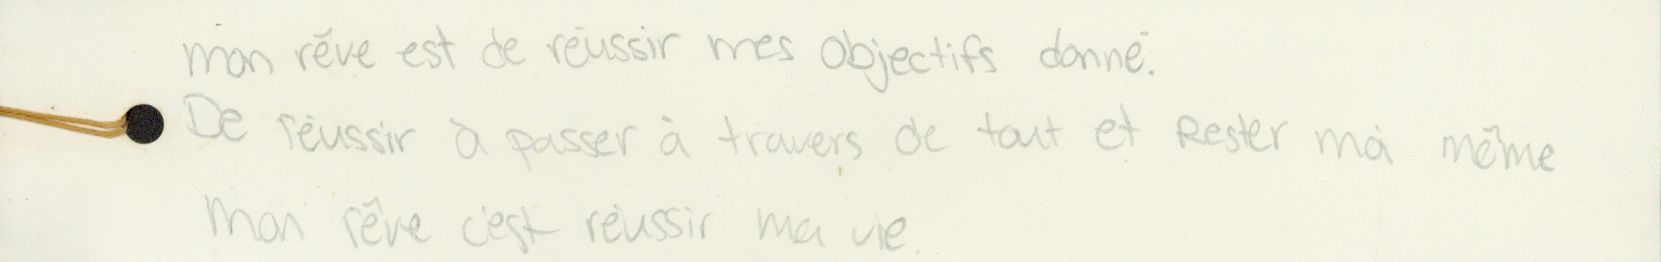 Mon rêve est de réussir mes objectifs donné.
De réussir à passer à travers de tout et Rester moi même
Mon rêve c'est réussir ma vie.